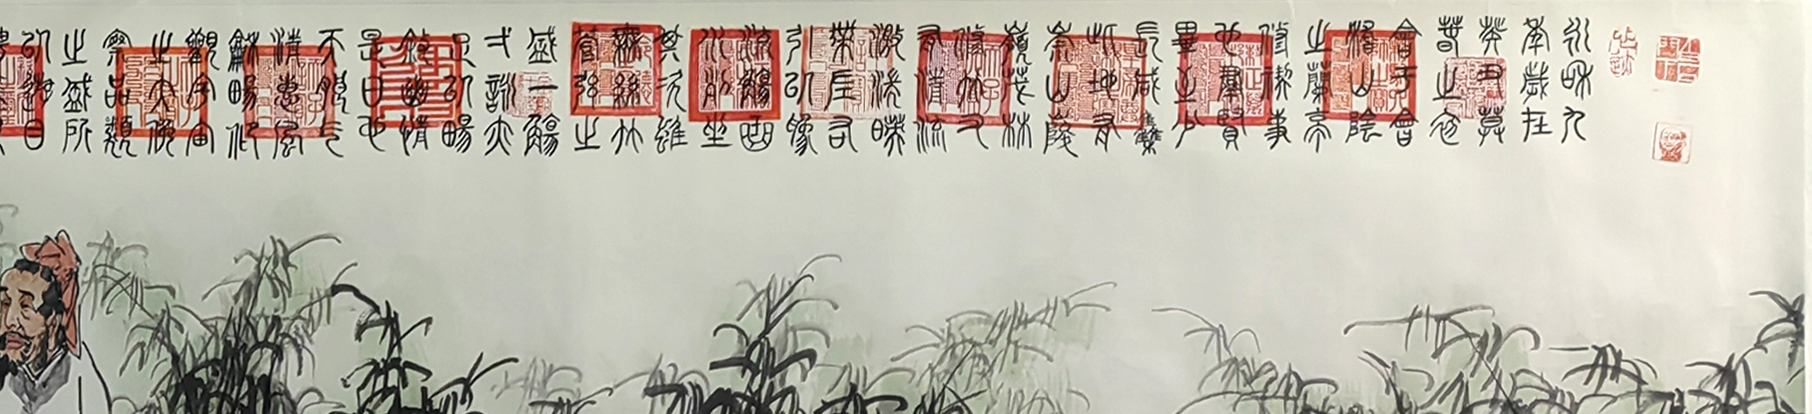 永和九
年歲在
癸丑莫
春之初
會于會
稽山陰
之蘭亭
修禊事
也羣賢
畢至少
長咸集
此地有
崇山峻
嶺茂林
修竹又
有清流
激湍暎
帶左右
引以為
流觴曲
水列坐
其次雖
無絲竹
管弦之
盛一觴
弌詠亦
足以暢
敘幽情
是日也
天朗气
清惠風
龢暢仰
觀宇宙
之大俯
察品類
之盛所
以遊目